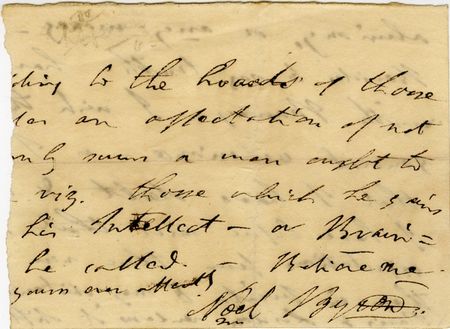 ding to the hoards of those
an affectation of not
only sums a man ought to
viz. those which he gains
his Intellect - or Brain=
be called - Believe me
yours ever affectly
Noel Byron.